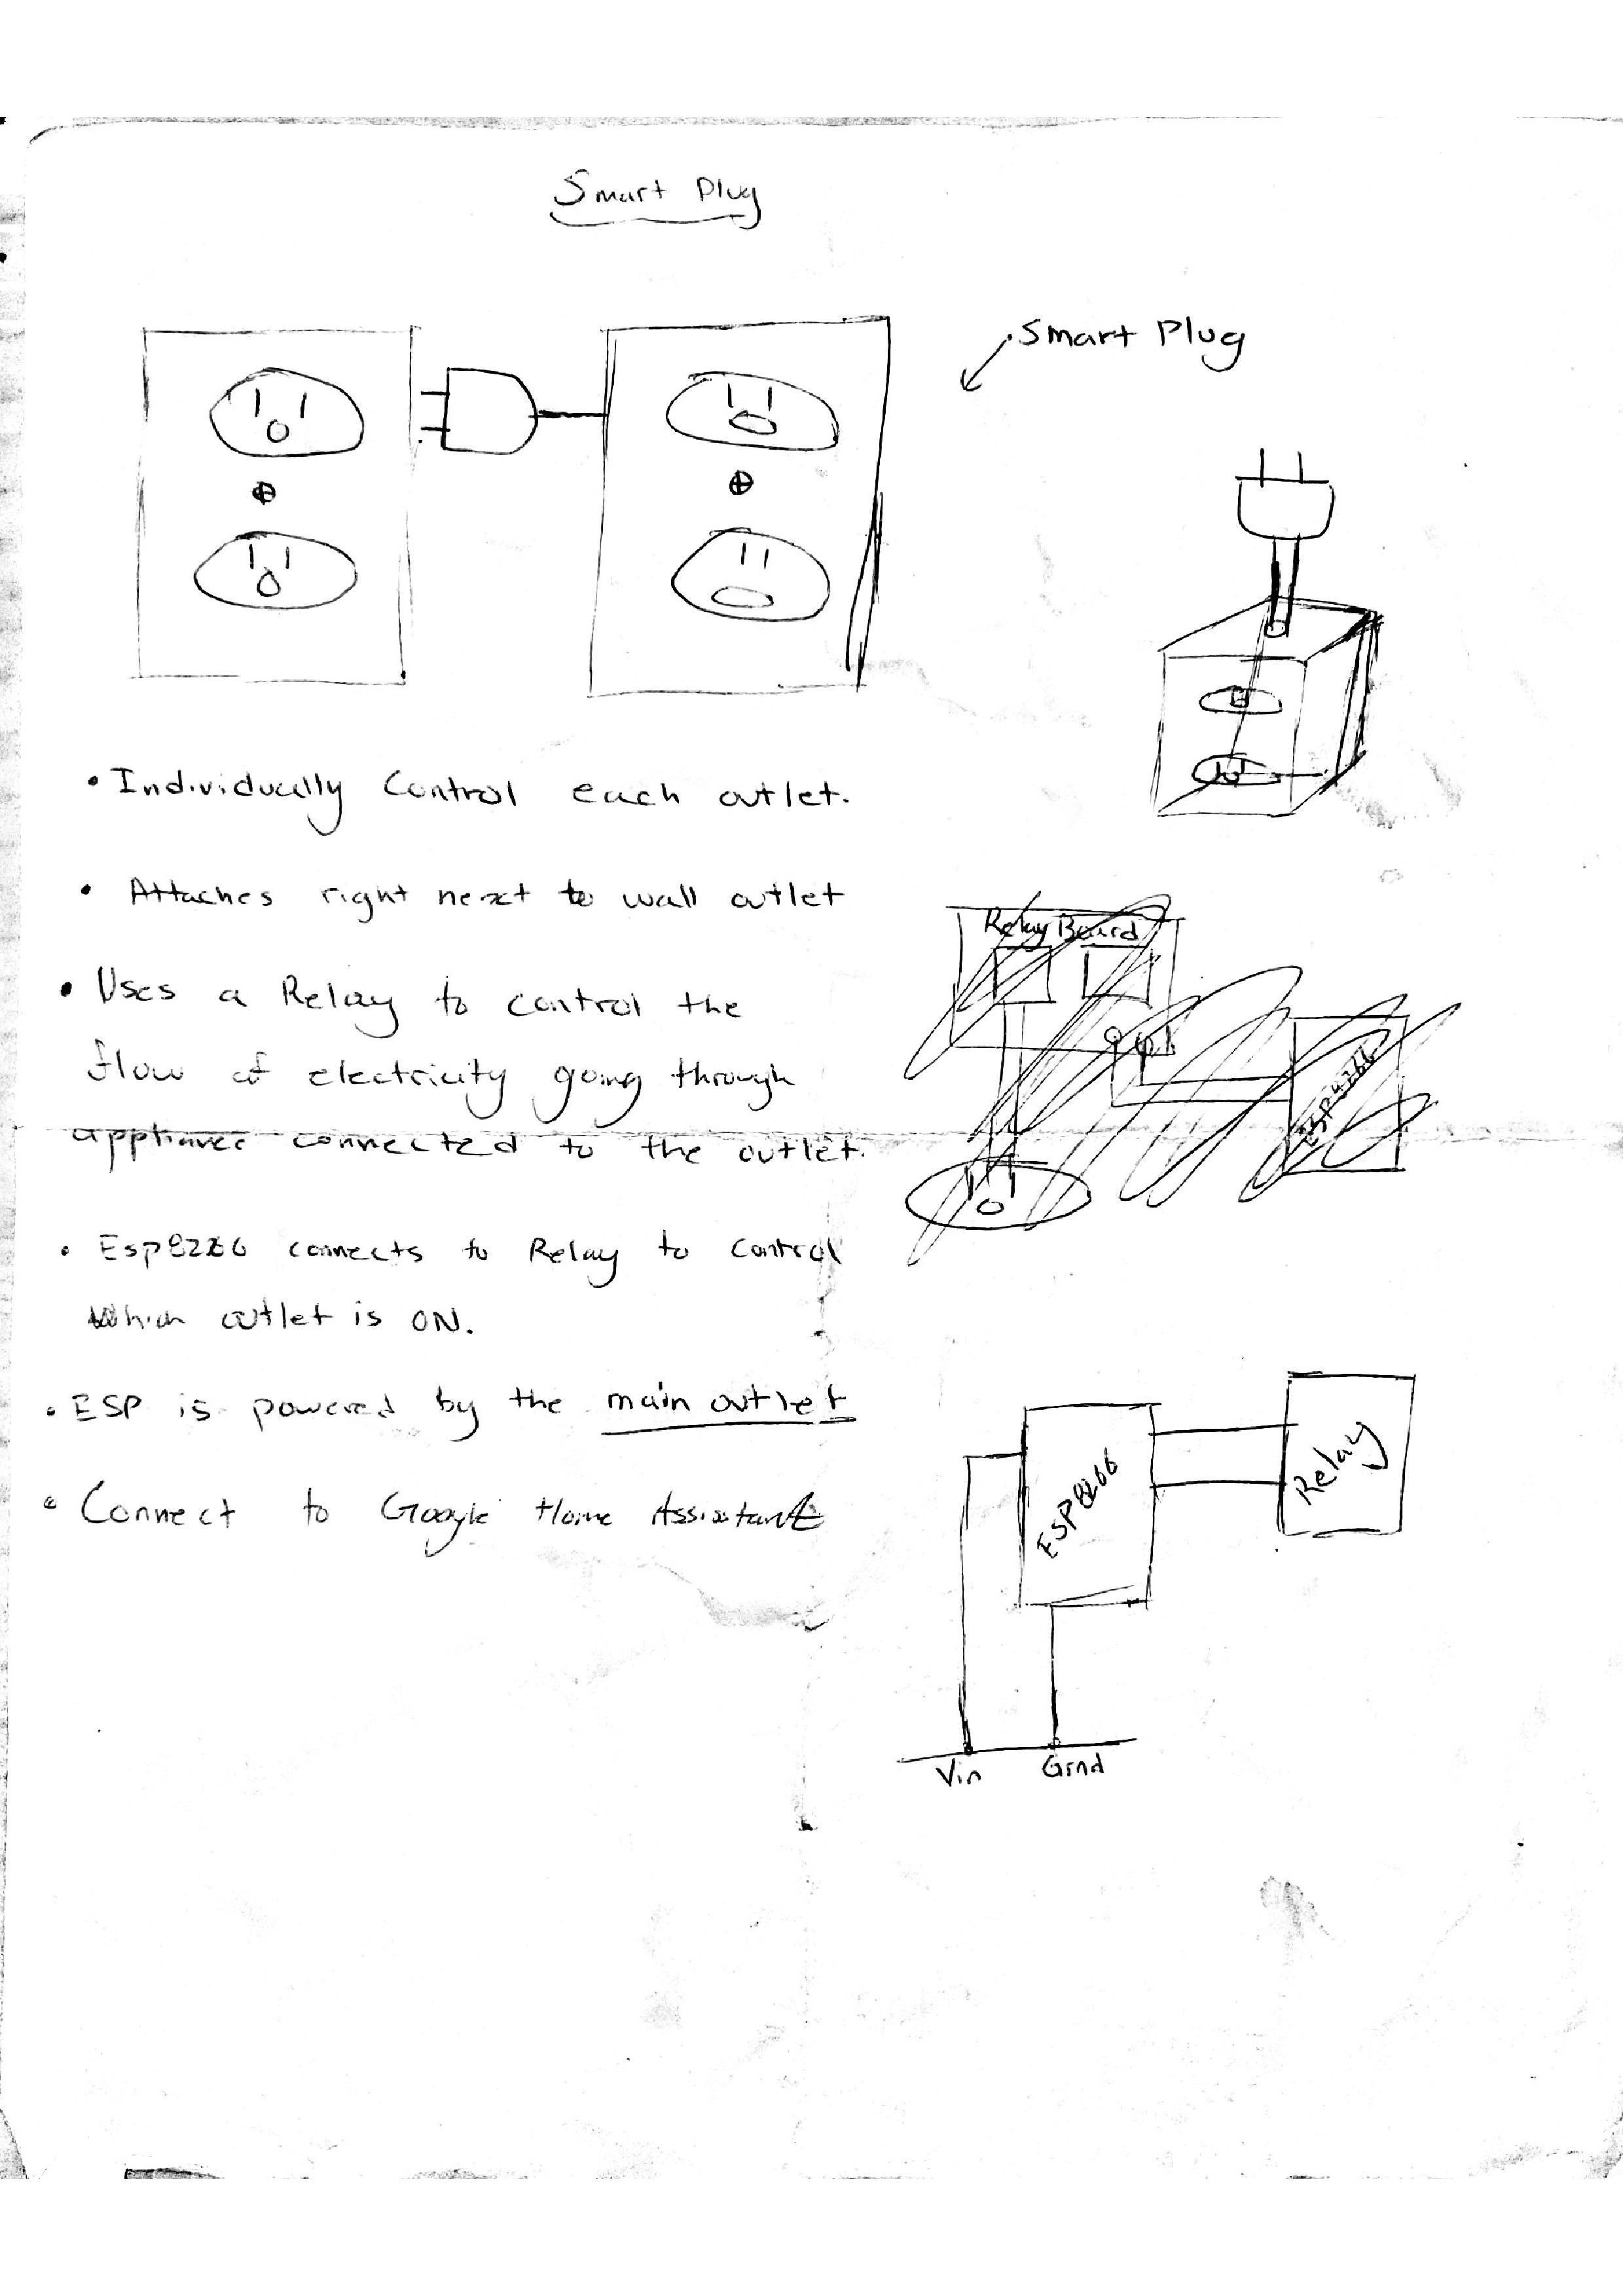 Smart Plug
Smart Plug
• Individually Control each outlet.
• Attaches right next to wall outlet
• Uses a Relay to control the
flow of electricity going through
appliance connected to the outlet.
Relay Board
ESP8266
• Esp8266 connects to Relay to control
which outlet is ON.
• ESP is powered by the main outlet
• Connect to Google Home Assistant
ESP8266
Relay
Vin Grnd